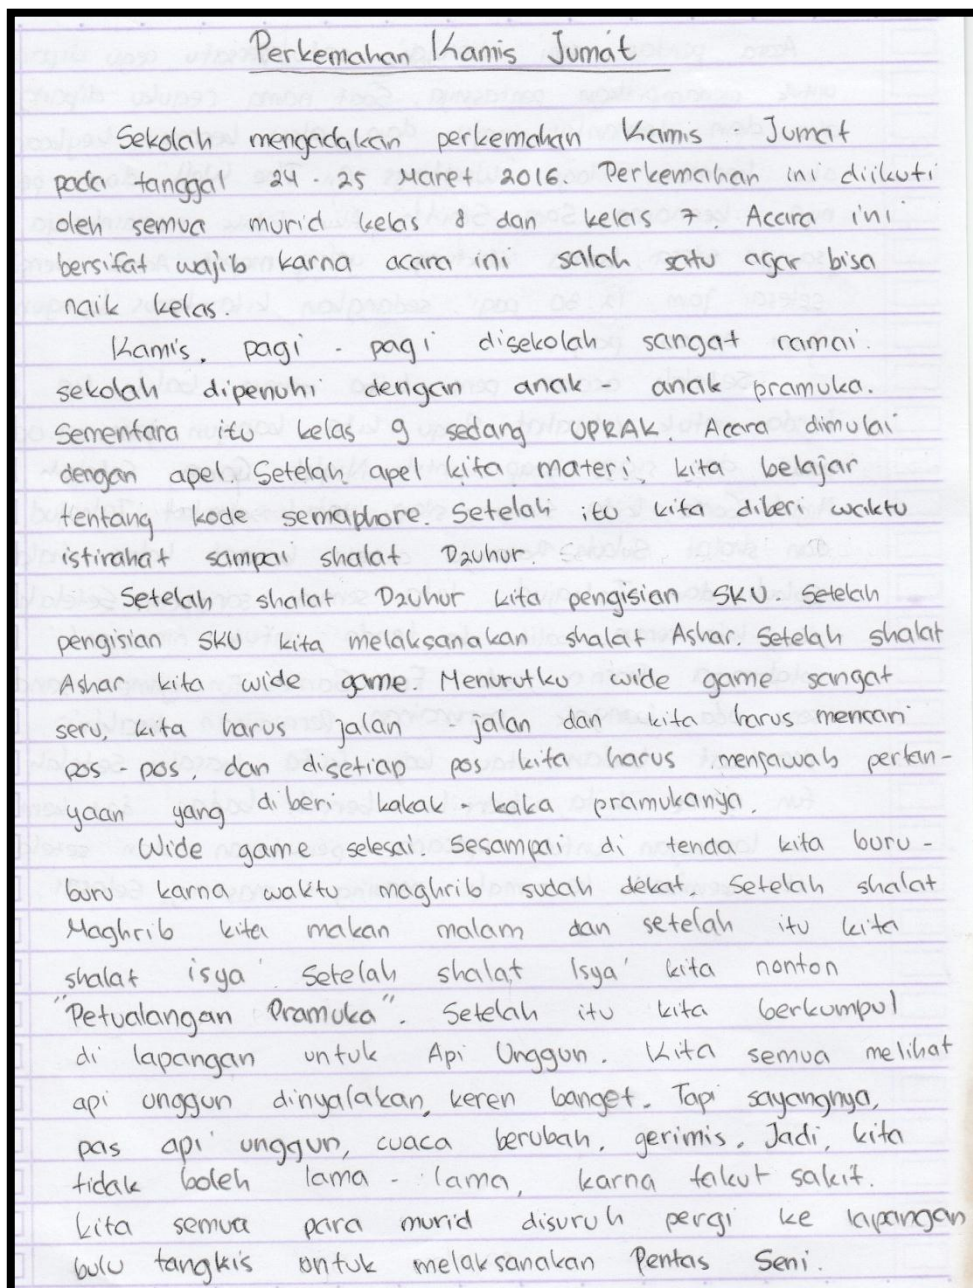 Perkemahan Kamis Jumat
Sekolah mengadakan perkemahan Kamis Jumat
pada tanggal 24 - 25 Maret 2016. Perkemahan ini diikuti
oleh semua murid kelas 8 dan kelas 7. Acara ini
bersifat wajib karna acara ini salah satu agar bisa
naik kelas.
Kamis, pagi - pagi disekolah sangat ramai
sekolah dipenuhi dengan anak - anak pramuka.
Sementara itu kelas 9 sedang UPRAK. Acara dimulai
dengan apel. Setelah apel kita materi, kita belajar
tentang kode semaphore. Setelah itu kita diberi waktu
istirahat sampai shalat Dzuhur.
Setelah shalat Dzuhur kita pengisian SKU. Setelah
pengisian SKU kita melaksanakan shalat Ashar. Setelah shalat
Ashar kita wide game. Menurutku wide game sangat
seru, kita harus jalan - jalan dan kita harus mencari
pos - pos, dan disetiap pos kita harus menjawab pertan-
yaan yang diberi kakak - kaka pramukanya.
Wide game selesai. Sesampai di tenda kita buru -
buru karna waktu maghrib sudah dekat. Setelah shalat
Maghrib kita makan malam dan setelah itu kita
shalat isya'. Setelah shalat Isya' kita nonton
"Petualangan Pramuka". Setelah itu kita berkumpul
di lapangan untuk Api Unggun. Kita semua melihat
api unggun dinyalakan, keren banget. Tapi sayangnya,
pas api unggun, cuaca berubah, gerimis. Jadi, kita
tidak boleh lama - lama, karna takut sakit.
Kita semua para murid disuruh pergi ke lapangan
bulu tangkis untuk melaksanakan Pentas Seni.